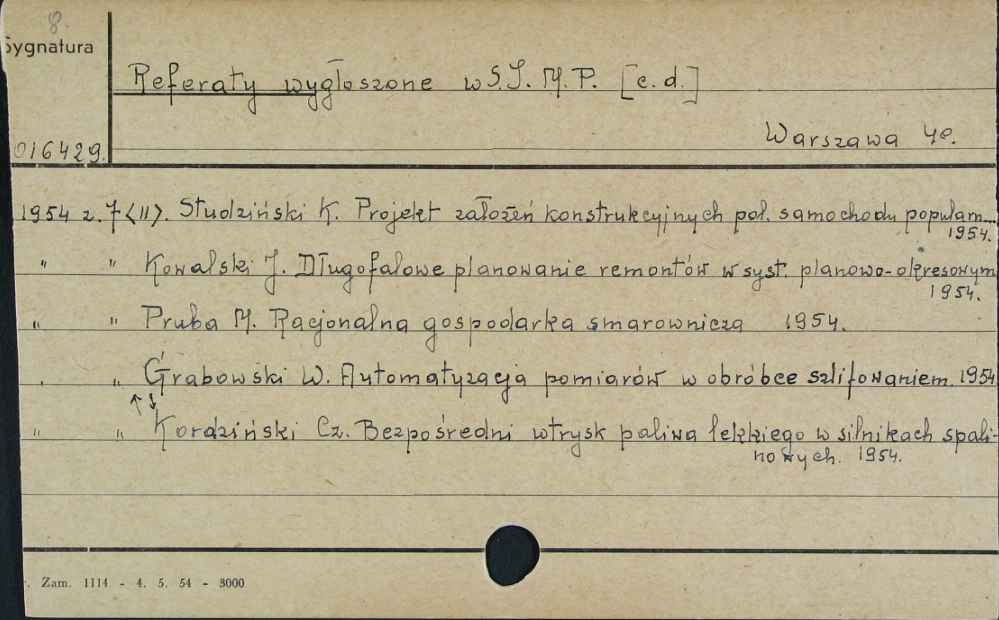 8.
Sygnatura
Referaty wygłoszone w S.I.M.P. [c.d.]
016429.
Warszawa 4o.
1954 z. 7 <11>. Studziński K. Projekt założeń konstrukcyjnych pol. samochodu popularn...
1954.
" " Kowalski J. Długofalowe planowanie remontów w syst. planowo-okresowym
1954.
" " Pruba M. Racjonalna gospodarka smarownicza 1954.
" " Grabowski W. Automatyzacja pomiarów w obróbce szlifowaniem. 1954
" " Kordziński Cz. Bezpośredni wtrysk paliwa lekkiego w silnikach spali-
nowych. 1954.
Zam. 1114 - 4. 5. 54 - 3000